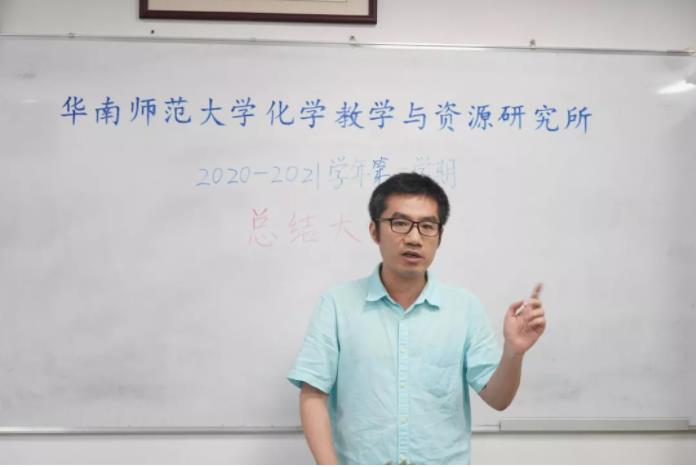 华南师范大学化学教学与资源研究所
2020-2021学年第 学期
总结大